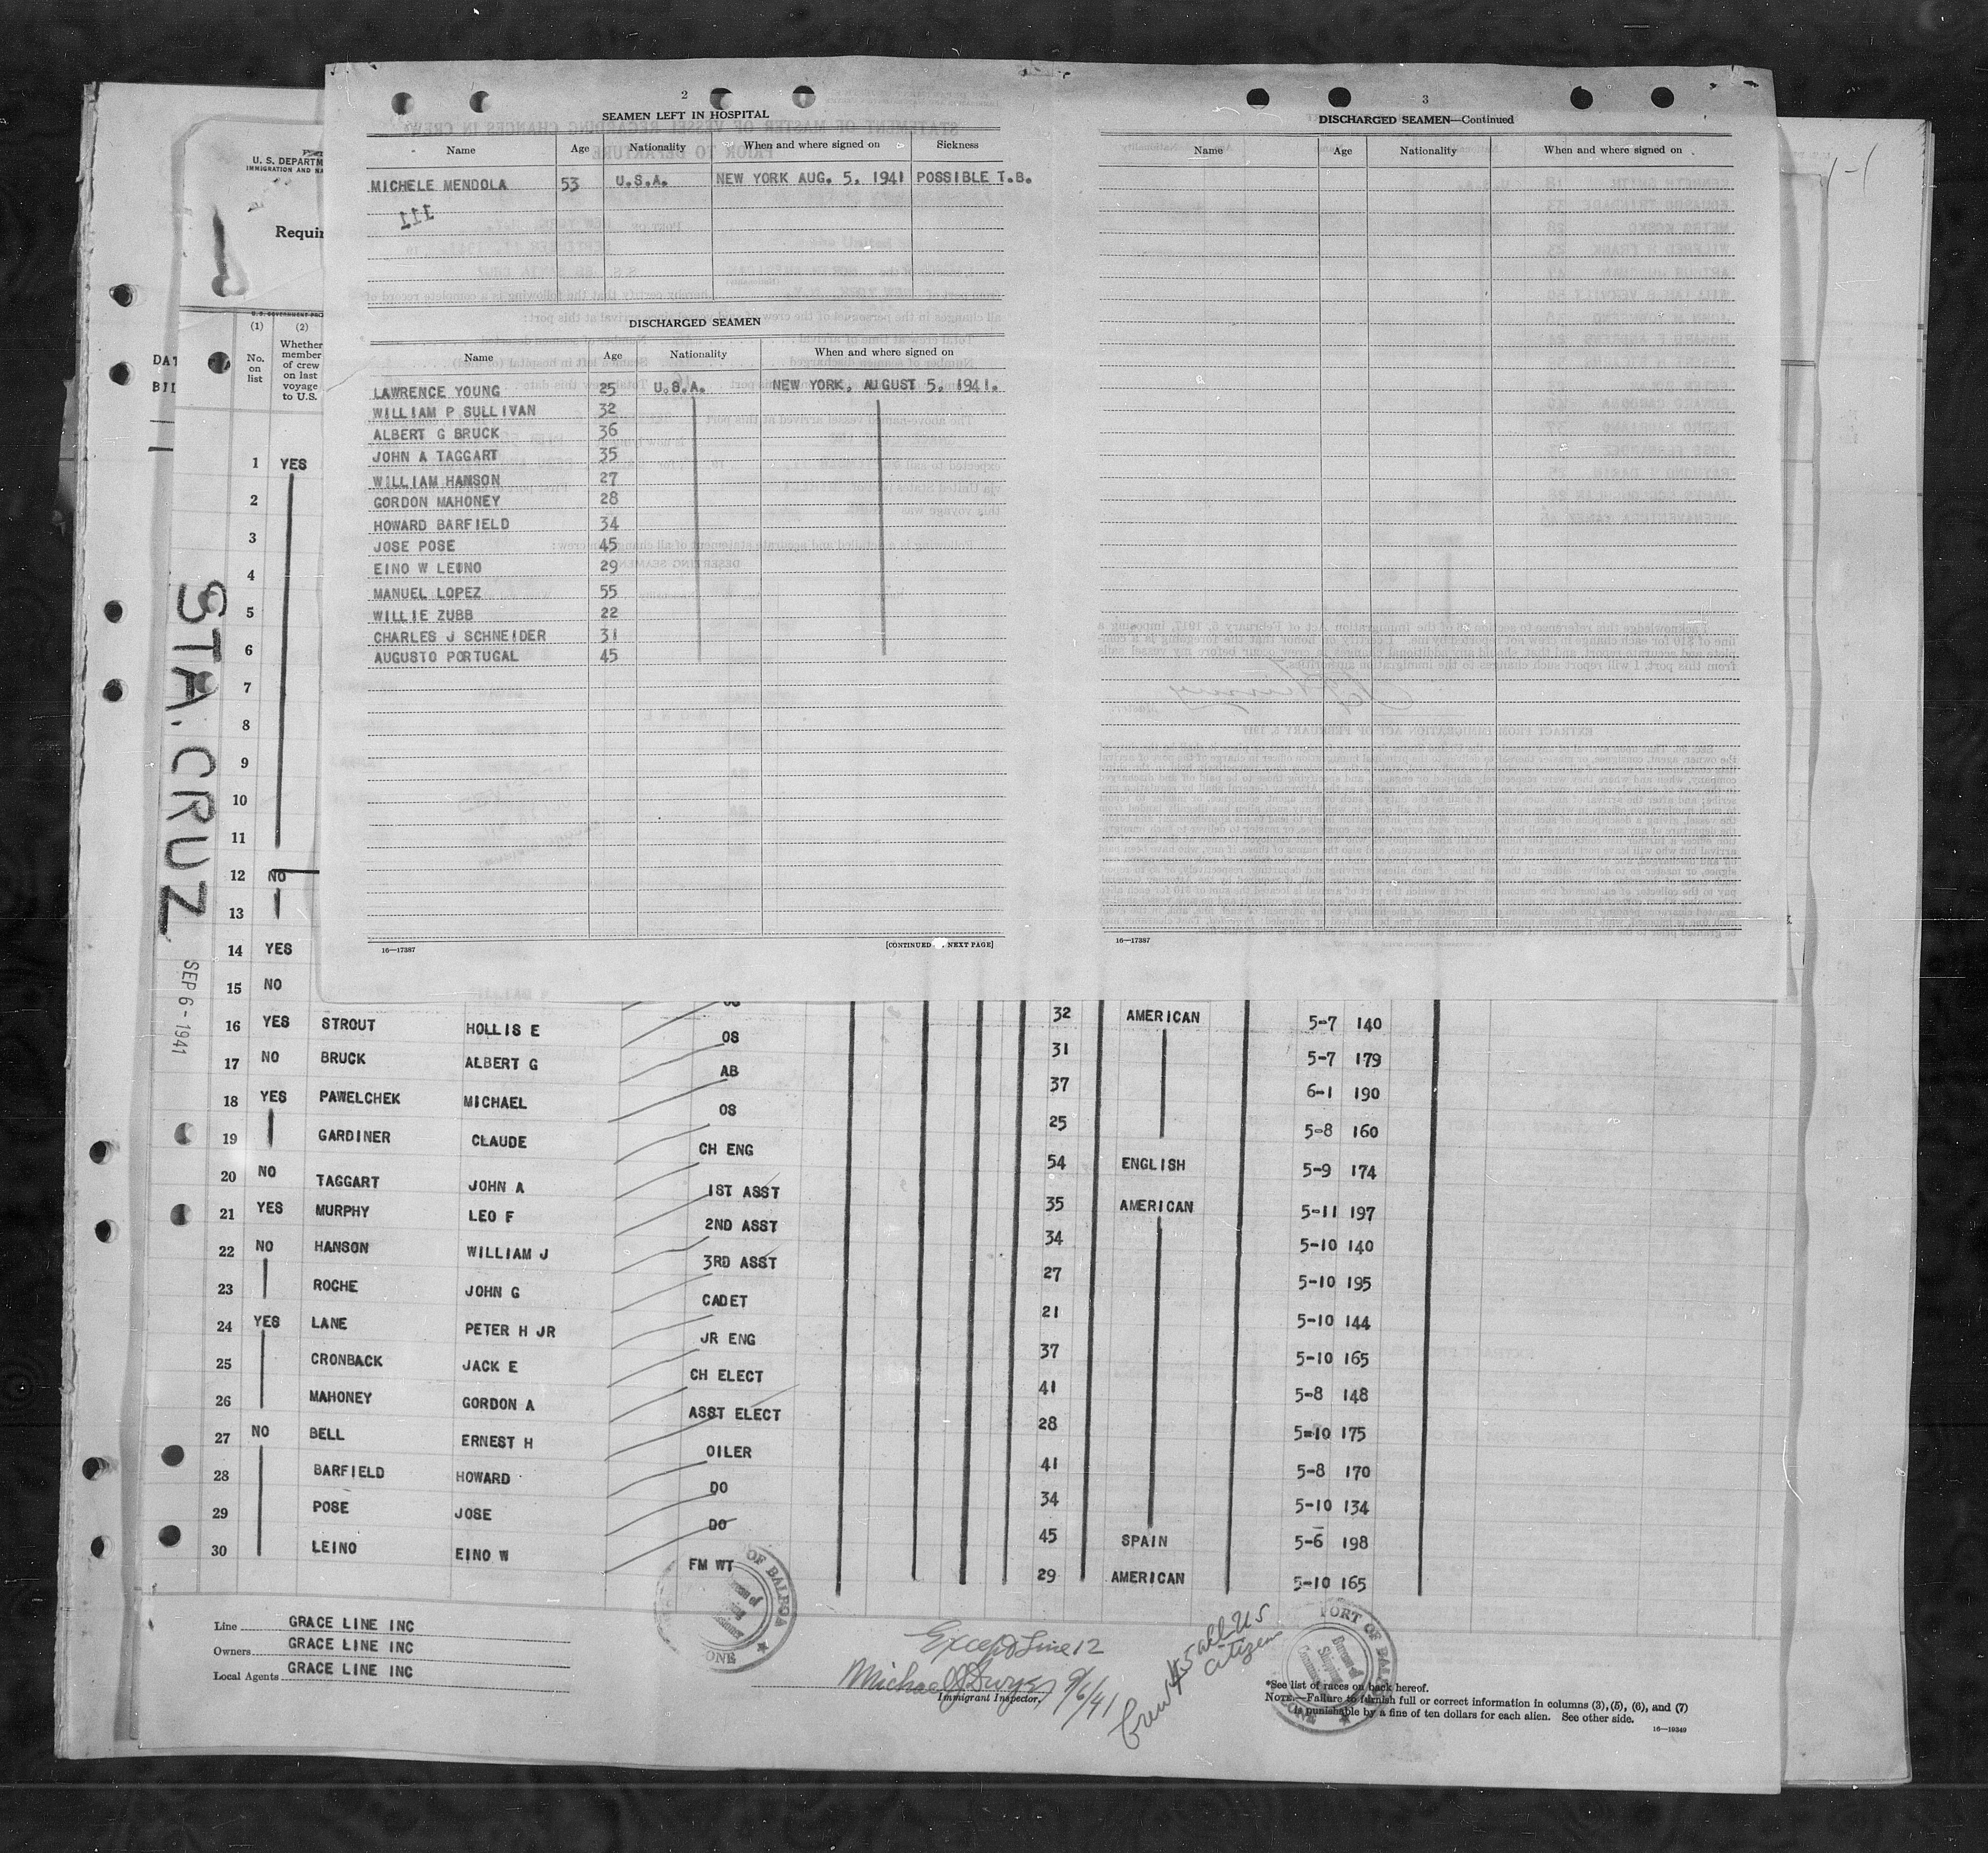 2
SEAMEN LEFT IN HOSPITAL
Name Age Nationality When and where signed on Sickness
MICHELE MENDOLA 53 U.S.A. NEW YORK AUG. 5, 1941 POSSIBLE T.B.
DISCHARGED SEAMEN
Name Age Nationality When and where signed on
LAWRENCE YOUNG 25 U.S.A. NEW YORK, AUGUST 5, 1941.
WILLIAM P SULLIVAN 32
ALBERT G BRUCK 36
JOHN A TAGGART 35
WILLIAM HANSON 27
GORDON MAHONEY 28
HOWARD BARFIELD 34
JOSE POSE 45
EINO W LEINO 29
MANUEL LOPEZ 55
WILLIE ZUBB 22
CHARLES J SCHNEIDER 31
AUGUSTO PORTUGAL 45
16—17387 [CONTINUED NEXT PAGE]
3
DISCHARGED SEAMEN—Continued
Name Age Nationality When and where signed on
16—17387
U. S. DEPARTM
IMMIGRATION AND NA
Requir
DAT
BIL
STA. CRUZ
SEP 6 - 1941
(1) (2)
No. on list
Whether member of crew on last voyage to U.S.
1 YES
2
3
4
5
6
7
8
9
10
11
12 NO
13
14 YES
15 NO
16 YES STROUT HOLLIS E OS 32 AMERICAN 5-7 140
17 NO BRUCK ALBERT G AB 31 5-7 179
18 YES PAWELCHEK MICHAEL OS 37 6-1 190
19 GARDINER CLAUDE CH ENG 25 5-8 160
20 NO TAGGART JOHN A 1ST ASST 54 ENGLISH 5-9 174
21 YES MURPHY LEO F 2ND ASST 35 AMERICAN 5-11 197
22 NO HANSON WILLIAM J 3RD ASST 34 5-10 140
23 ROCHE JOHN G CADET 27 5-10 195
24 YES LANE PETER H JR JR ENG 21 5-10 144
25 CRONBACK JACK E CH ELECT 37 5-10 165
26 MAHONEY GORDON A ASST ELECT 41 5-8 148
27 NO BELL ERNEST H OILER 28 5-10 175
28 BARFIELD HOWARD DO 41 5-8 170
29 POSE JOSE DO 34 5-10 134
30 LEINO EINO W FM WT 45 SPAIN 5-6 198
29 AMERICAN 5-10 165
Line GRACE LINE INC
Owners GRACE LINE INC
Local Agents GRACE LINE INC
Except Line 12
Michael J Dwyer 9/6/41
Immigrant Inspector.
Crew 45 all US
Citizens
PORT OF BALBOA
*See list of races on back hereof.
NOTE.—Failure to furnish full or correct information in columns (3), (5), (6), and (7)
is punishable by a fine of ten dollars for each alien. See other side.
16—10349